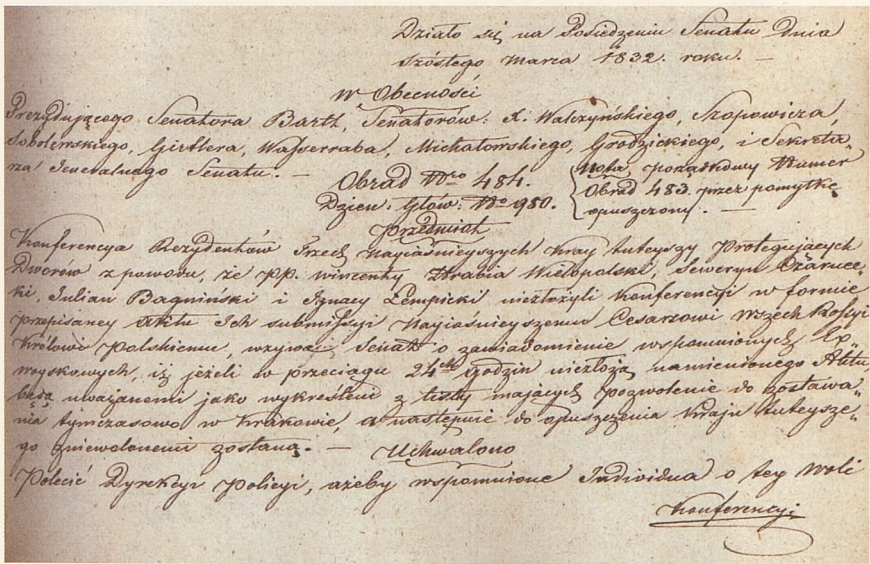 Działo się na Posiedzeniu Senatu Dnia
Szóstego Marca 1832. roku. —
w Obecności
Prezydującego Senatora Bartl, Senatorów: X. Walczyńskiego, Szopowicza,
Sobolewskiego, Girtlera, Wasserraba, Michałowskiego, Grodzickiego, i Sekreta„
rza Jeneralnego Senatu. —
Obrad Nro 484.
Dzien: Głów: No 980.
Nota, porządkowy Numer
Obrad 483. przez pomyłkę
opuszczony. —
Przedmiot
Konferencya Rezydentów Trzech Nayiaśnieyszych Kray tuteyszy Protegujących
Dworów z powodu, że PP. Wincenty Hrabia Wielopolski, Seweryn
ki, Julian Bagniński i Ignacy Łempicki niezłożyli Konferencyi w formie
przepisaney Aktu Ich submissyi Nayiaśnieyszemu Cesarzowi Wszech Rossyi
Królowi Polskiemu, wzywa Senat o zawiadomienie wspomnionych Ex„
woyskowych, iż jeżeli w przeciągu 24ch godzin niezłożą namienionego Aktu
będą uważanemi jako wykreśleni z listy mających pozwolenie do zostawa„
nia tymczasowo w Krakowie, a następnie do opuszczenia Kraju tuteysze„
go zniewolonemi zostaną. — Uchwalono
Polecić Dyrekcyi Policyi, ażeby wspomnione Individua o tey woli
Konferencyi